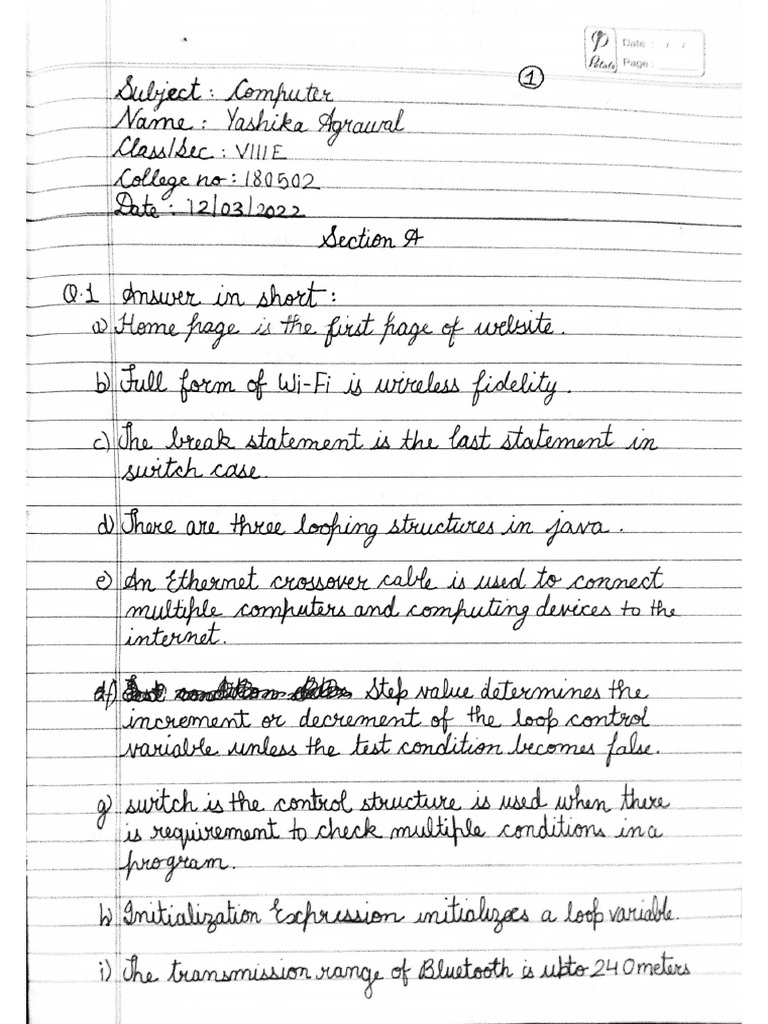 Date : / /
Petals Page :
1
Subject : Computer
Name : Yashika Agrawal
Class/Sec : VIII E
College no : 180502
Date : 12/03/2022
Section A
Q.1 Answer in short :
a) Home page is the first page of website.
b) Full form of Wi-Fi is wireless fidelity.
c) The break statement is the last statement in
switch case.
d) There are three looping structures in java.
e) An Ethernet crossover cable is used to connect
multiple computers and computing devices to the
internet.
f) Step value determines the
increment or decrement of the loop control
variable unless the test condition becomes false.
g) switch is the control structure is used when there
is requirement to check multiple conditions in a
program.
h) Initialization Expression initializes a loop variable.
i) The transmission range of Bluetooth is upto 240meters